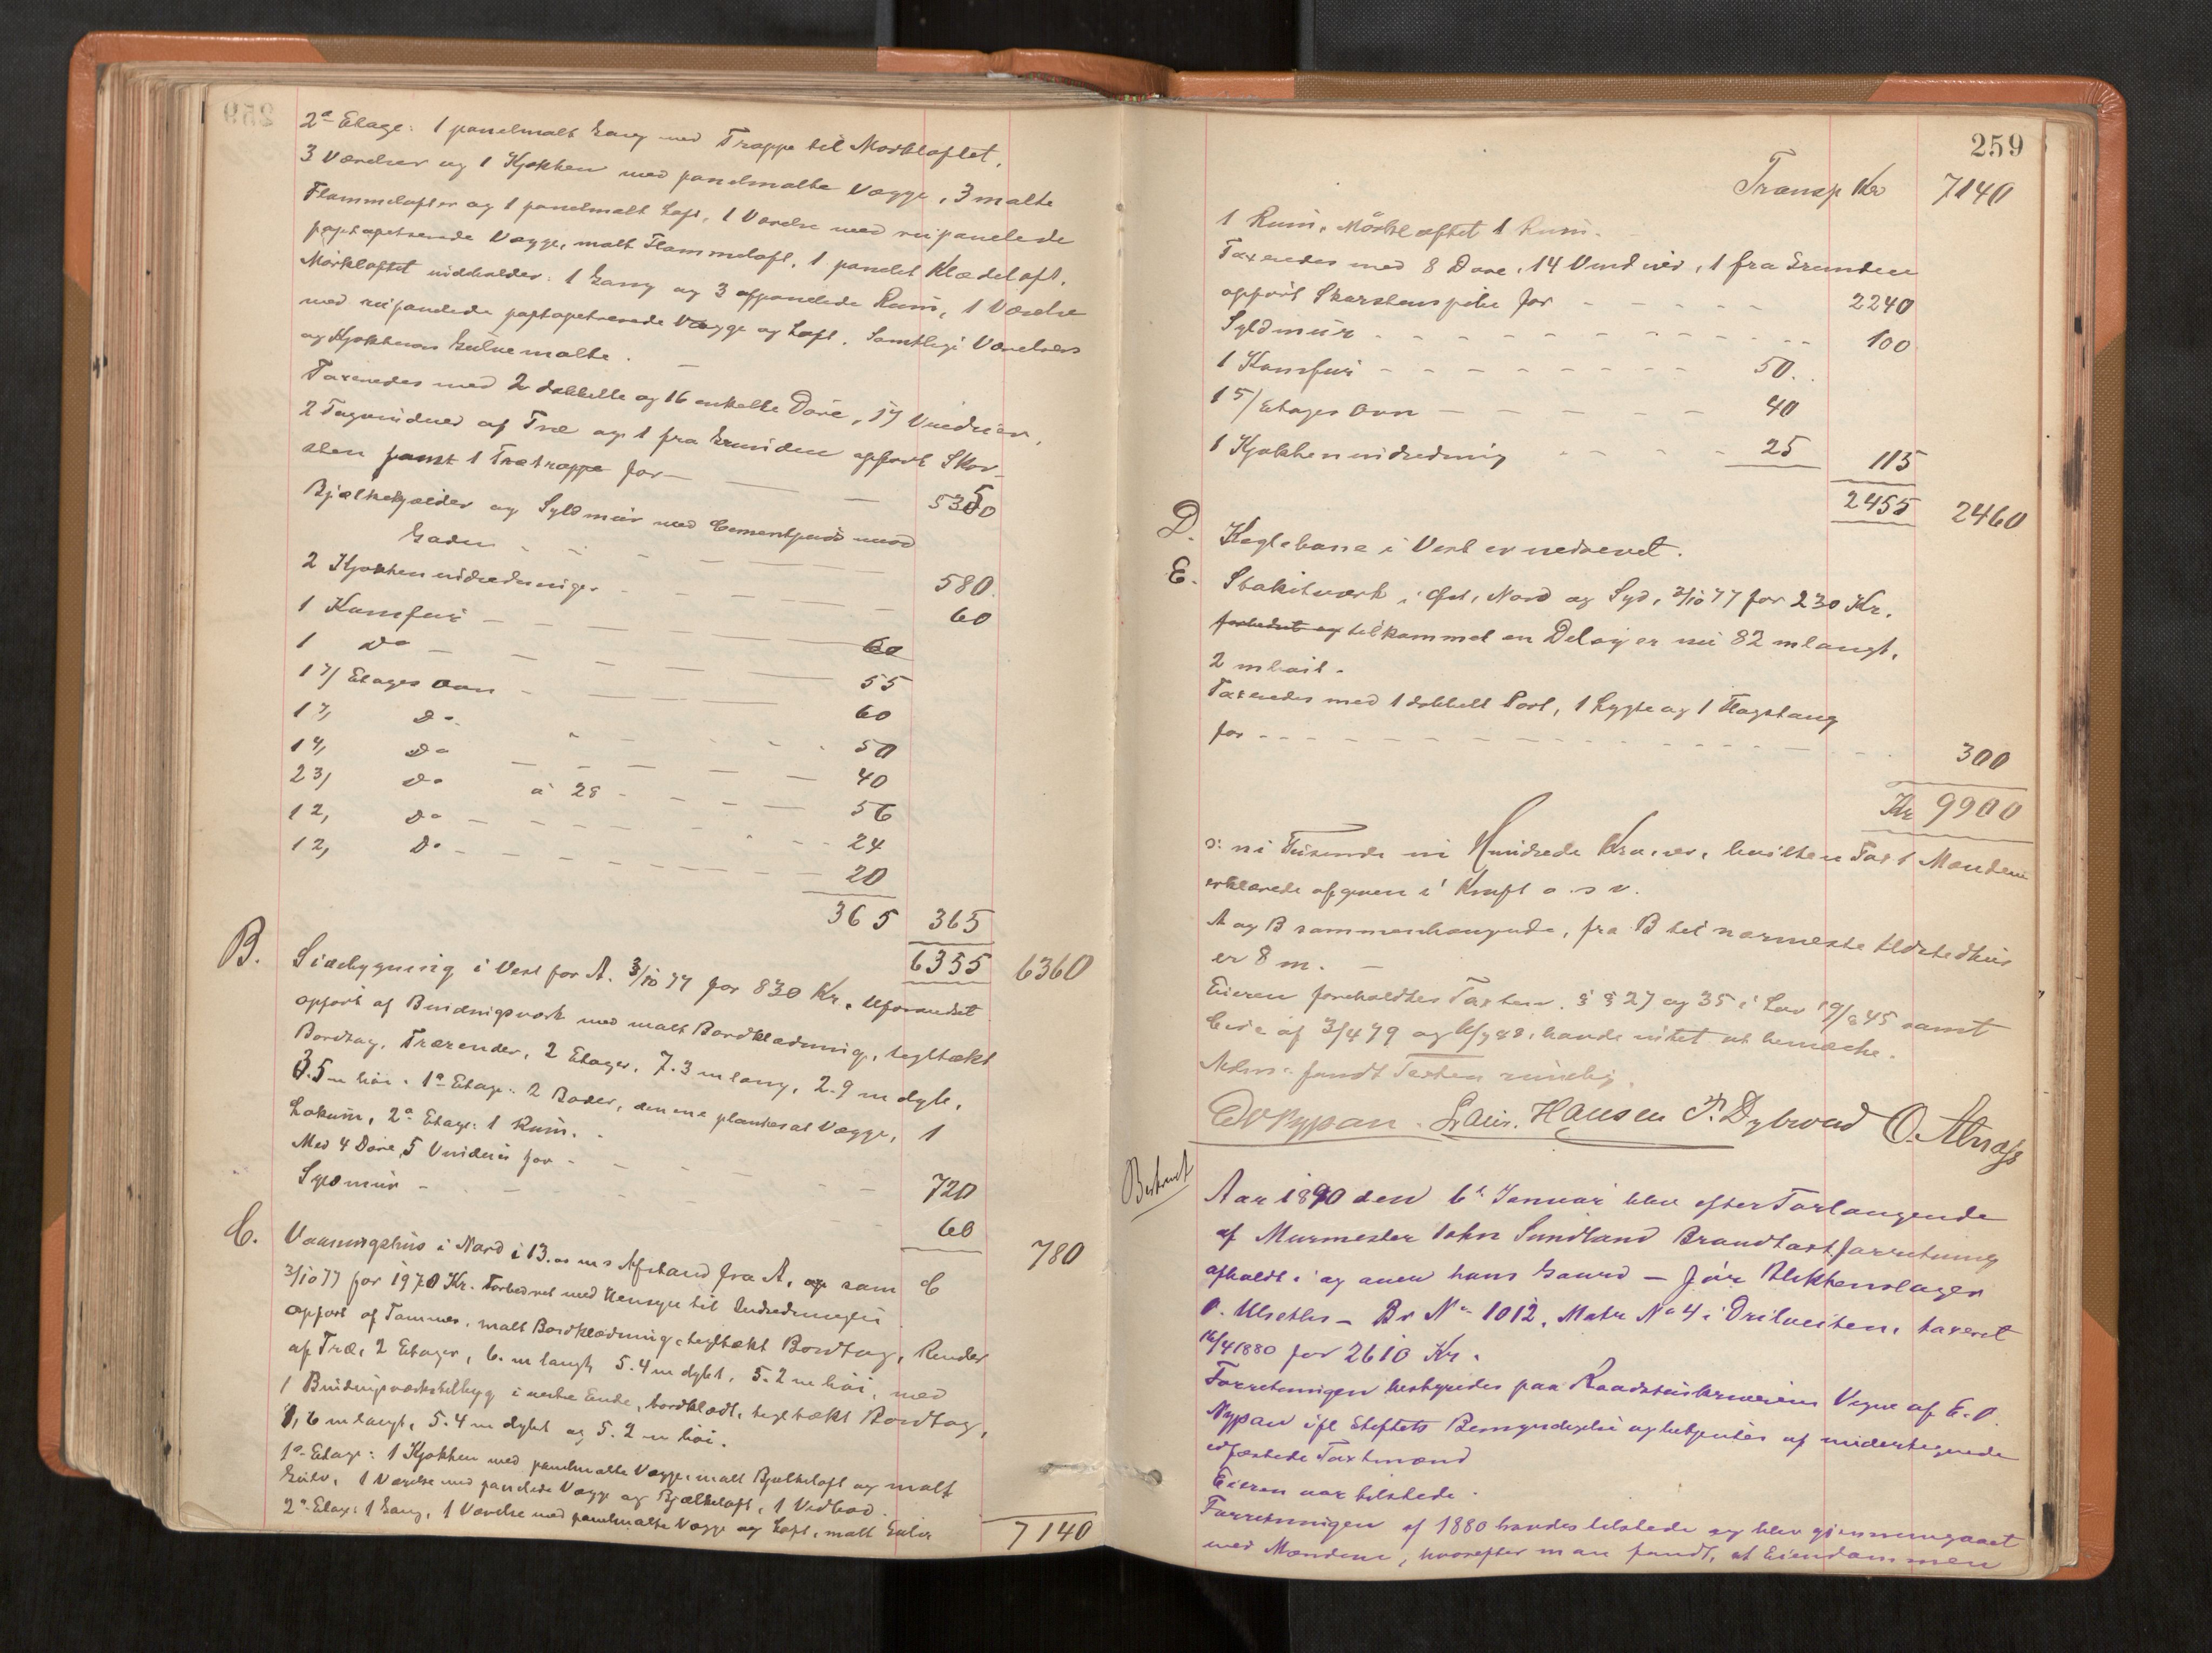 2ª Etage: 1 panelmalt Gang med Trappe til Mørkloftet,
3 Værelser og 1 Kjøkken med panelmalte Vægge, 3 malte
Flammelofter og 1 panelmalt Loft, 1 Værelse med rupanelede
paptapetserede Vægge, malt Flammeloft, 1 panelet Klædeloft.
Mørkloftet indeholder: 1 Gang og 3 afpanelede Rum, 1 Værelse
med rupanelede paptapetserede Vægge og Loft. Samtlige Værelsers
og Kjøkkeners Gulve malte.
Taxeredes med 2 dobbelte og 16 enkelte Døre, 17 Vinduer,
2 Tagvinduer af Træ og 1 fra Grunden opført Skor-
sten samt 1 Trætrappe for 5350
Bjælkekjælder og Syldmur med Cementpuds mod
Gaden 580.
2 Kjøkkenindredninger 60
1 Komfur 60
1 Do 55
1 3/ Etages Ovn 60
1 3/ Do 50
1 4/ Do 40
2 3/ Do à 28 56
1 2/ Do 24
1 2/ Do 20
365 365
6355 6360
B. Sidebygning i Vest for A. 3/10 77 for 830 Kr. Uforandret
opført af Bindingsværk med malt Bordklædning, tegltækt
Bordtag, Trærender, 2 Etager, 7.3 m lang, 2.9 m dyb,
3.5 m høi. 1ª Etage: 2 Boder, den ene plankesat Vægge, 1
Lokum, 2ª Etage: 1 Rum.
Med 4 Døre, 5 Vinduer for 720
Syldmur 60
780
C. Vaaningshus i Nord i 13. m s Afstand fra A, og som C
3/10 77 for 1970 Kr. Forbedret med Hensyn til Indredningen
Opført af Tømmer, malt Bordklædning, tegltækt Bordtag, Render
af Træ, 2 Etager, 6. m langt, 5.4 m dybt, 5.2 m høi, med
1 Bindingsværkstilbyg i vestre Ende, bordklædt, tegltækt Bordtag,
1,6 m langt, 5.4 m dybt og 5.2 m høi.
1ª Etage: 1 Kjøkken med panelmalte Vægge, malt Bjælkeloft og malt
Gulv, 1 Værelse med panelede Vægge og Bjælkeloft, 1 Vedbod.
2ª Etage: 1 Gang, 1 Værelse med panelmalte Vægge og Loft, malt Gulv
7140
259
Transp Kr 7140
1 Rum, Mørkloftet 1 Rum.
Taxeredes med 8 Døre, 14 Vinduer, 1 fra Grunden
opført Skorstenspibe for 2240
Syldmur 100
1 Komfur 50.
1 5/ Etages Ovn 40
1 Kjøkkenindredning 25 115
2455 2460
D. Keglebane i Vest er nedrevet.
E. Stakitværk i Øst, Nord og Syd, 3/10 77 for 230 Kr.
forbedret og tilkommet en Del og er nu 82 m langt,
2 m høit.
Taxeredes med 1 dobbelt Port, 1 Lygte og 1 Flagstang
for 300
Kr 9900
ɔ: ni Tusende ni Hundrede Kroner, hvilken Taxt Mændene
erklærede afgiven i Kraft o.s.v.
A og B sammenhængende, fra B til nærmeste Ildstedhus
er 8 m.
Eieren foreholdtes Taxtens §§ 27 og 35 i Lov 19/8 45 samt
Circ af 3/4 79 og 88, havde intet at bemærke.
fandt Taxten rimelig.
Nypan. Laur. Hansen P. Dybvad O. Alnæs
Beskrevet
Aar 1890 den 6t Januar blev efter Forlangende
af Murmester John Sundland Brandtaxtforretning
afholdt i og over hans Gaard – før Blikkenslager
O. Ulseths – Br No 1012, Matr No 4 i Drilveiten, taxeret
16/4 1880 for 2610 Kr.
Forretningen bestyredes paa Raadstueskriverens Vegne af E. O.
Nypan ifl Stiftets Bemyndigelse og betjentes af undertegnede
edfæstede Taxtmænd
Eieren var tilstede.
Forretningen af 1880 havdes tilstede og blev gjennemgaaet
med Mændene, hvorefter man fandt, at Eiendommen